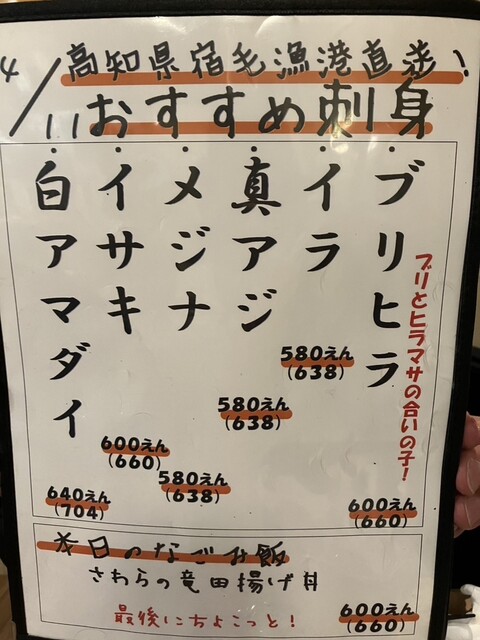 高知県宿毛漁港直送!
4/11 おすすめ刺身
・ブリヒラ
ブリとヒラマサの合いの子!
600えん
(660)
・イラ
580えん
(638)
・真アジ
580えん
(638)
・メジナ
580えん
(638)
・イサキ
600えん
(660)
・白アマダイ
640えん
(704)
本日のなごみ飯
さわらの竜田揚げ丼
最後にちょこっと!
600えん
(660)